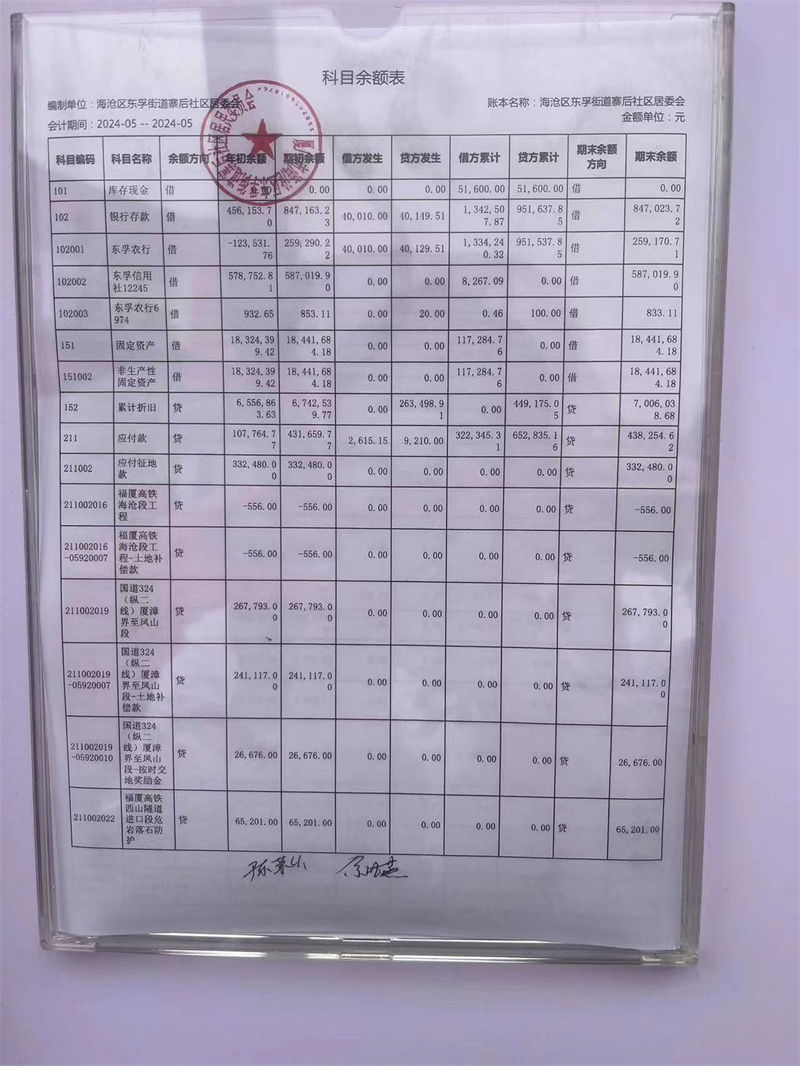 科目余额表
编制单位：海沧区东孚街道寨后社区居委会 账本名称：海沧区东孚街道寨后社区居委会
会计期间：2024-05 -- 2024-05 金额单位：元
科目编码 科目名称 余额方向 年初余额 期初余额 借方发生 贷方发生 借方累计 贷方累计 期末余额方向 期末余额
101 库存现金 借 0.00 0.00 0.00 51,600.00 51,600.00 借 0.00
102 银行存款 借 456,153.70 847,163.23 40,010.00 40,149.51 1,342,507.87 951,637.85 借 847,023.72
102001 东孚农行 借 -123,531.76 259,290.22 40,010.00 40,129.51 1,334,240.32 951,537.85 借 259,170.71
102002 东孚信用社12245 借 578,752.81 587,019.90 0.00 0.00 8,267.09 0.00 借 587,019.90
102003 东孚农行6974 借 932.65 853.11 0.00 20.00 0.46 100.00 借 833.11
151 固定资产 借 18,324,399.42 18,441,684.18 0.00 0.00 117,284.76 0.00 借 18,441,684.18
151002 非生产性固定资产 借 18,324,399.42 18,441,684.18 0.00 0.00 117,284.76 0.00 借 18,441,684.18
152 累计折旧 贷 6,556,863.63 6,742,539.77 0.00 263,498.91 0.00 449,175.05 贷 7,006,038.68
211 应付款 贷 107,764.77 431,659.77 2,615.15 9,210.00 322,345.31 652,835.16 贷 438,254.62
211002 应付征地款 贷 332,480.00 332,480.00 0.00 0.00 0.00 0.00 贷 332,480.00
211002016 福厦高铁海沧段工程 贷 -556.00 -556.00 0.00 0.00 0.00 0.00 贷 -556.00
211002016-05920007 福厦高铁海沧段工程-土地补偿款 贷 -556.00 -556.00 0.00 0.00 0.00 0.00 贷 -556.00
211002019 国道324（纵二线）厦漳界至凤山段 贷 267,793.00 267,793.00 0.00 0.00 0.00 0.00 贷 267,793.00
211002019-05920007 国道324（纵二线）厦漳界至凤山段-土地补偿款 贷 241,117.00 241,117.00 0.00 0.00 0.00 0.00 贷 241,117.00
211002019-05920010 国道324（纵二线）厦漳界至凤山段-按时交地奖励金 贷 26,676.00 26,676.00 0.00 0.00 0.00 0.00 贷 26,676.00
211002022 福厦高铁西山隧道进口段危岩落石防护 贷 65,201.00 65,201.00 0.00 0.00 0.00 0.00 贷 65,201.00